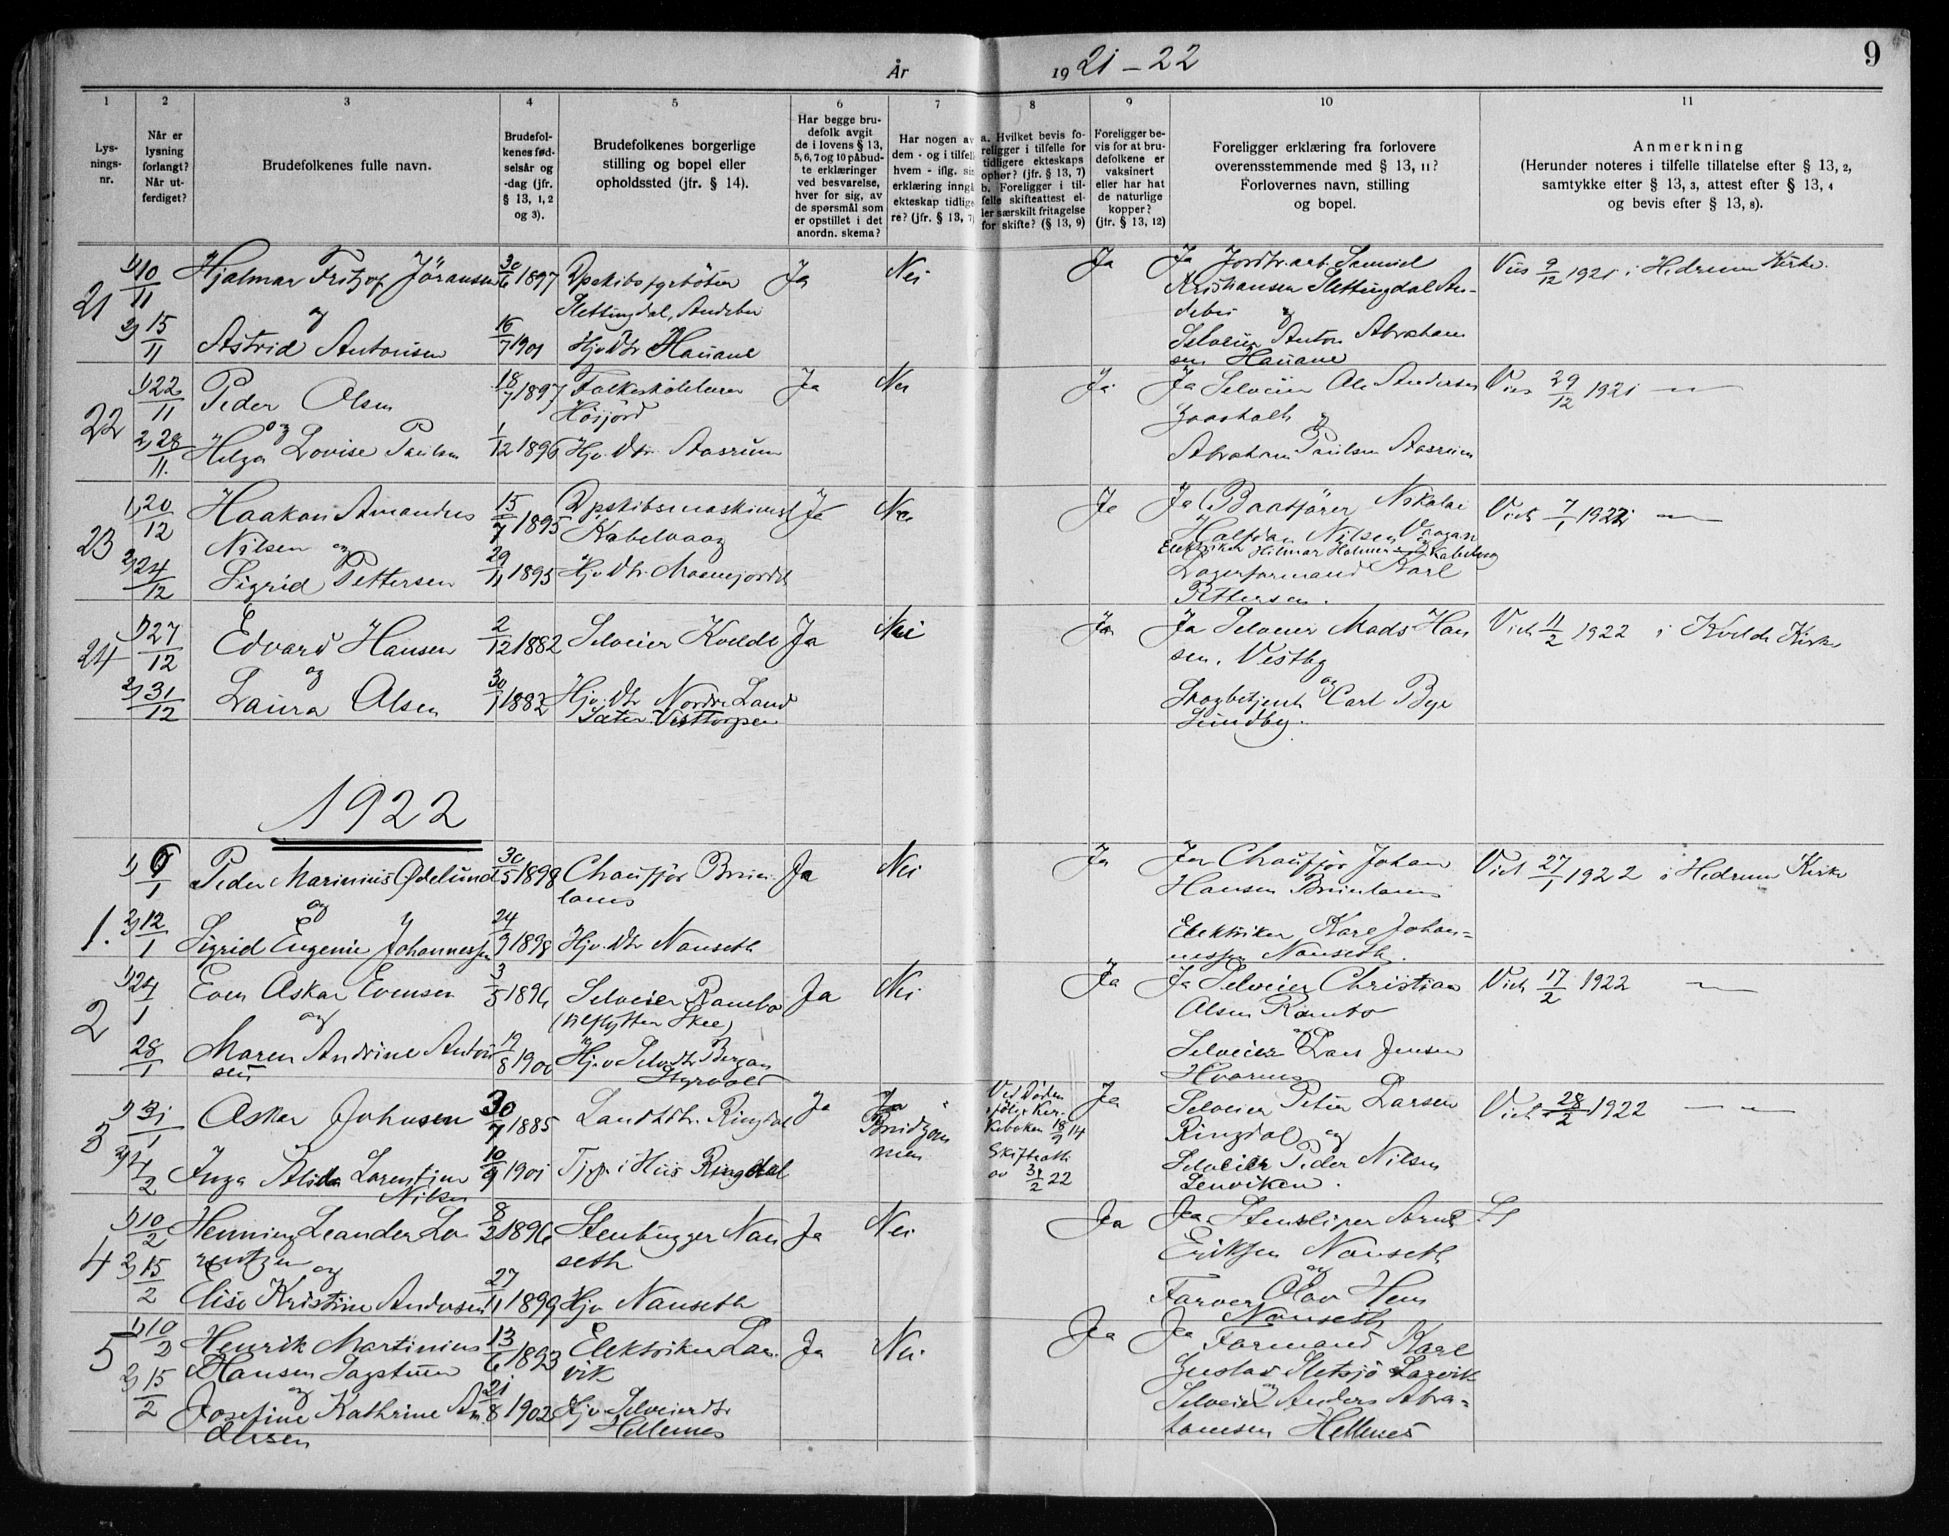 År 1921-22
9
1 2 3 4 5 6 7 8 9 10 11
Lys-
nings-
nr.
Når er
lysning
forlangt?
Når ut-
ferdiget?
Brudefolkenes fulle navn.
Brudefol-
kenes fød-
selsår og
-dag (jfr.
§ 13, 1, 2
og 3).
Brudefolkenes borgerlige
stilling og bopel eller
opholdssted (jfr. § 14).
Har begge bru-
defolk avgit
de i lovens § 13,
5, 6, 7 og 10 påbud-
te erklæringer
ved besvarelse,
hver for sig, av
de spørsmål som
er opstillet i det
anordn. skema?
Har nogen av
dem - og i tilfelle
hvem - iflg. sin
erklæring inngå
ekteskap tidlige
re? (jfr. § 13, 7)
a. Hvilket bevis fo-
religger i tilfelle for
tidligere ekteskaps
ophør? (jfr. § 13, 7)
b. Foreligger i til-
felle skifteattest el-
ler særskilt fritagelse
for skifte? (§ 13, 9)
Foreligger be-
vis for at bru-
defolkene er
vaksinert
eller har hat
de naturlige
kopper?
(jfr. § 13, 12)
Foreligger erklæring fra forlovere
overensstemmende med § 13, 11?
Forlovernes navn, stilling
og bopel.
Anmerkning
(Herunder noteres i tilfelle tillatelse efter § 13, 2,
samtykke efter § 13, 3, attest efter § 13, 4
og bevis efter § 13, 8).
21
1) 10/11
Hjalmar Fritjof Jöransen
30/6 1897
Dpskibsfyrböter
Slettingdal, Andebu
Ja
Nei
Ja
Ja Jordbr.arb. Samuel
Kristiansen Slettingdal An-
debu
og
Selveier Anton Abraham
sen Hauane
Vies 9/12 1921 i Hedrum Kirke.
og
2) 15/11
Astrid Antonsen
16/7 1901
Hjv. Dtr Hauane
22
1) 22/11
Peder Olsen
18/7 1897
Folkeskölelærer
Hösjord
Ja
Nei
Ja
Ja Selveier Ole Andersen
og
Abraham Paulsen Aasrum
Vies 29/12 1921 — " —
og
2) 28/11.
Helga Lovise Paulsen
1/12 1896
Hjv. Dtr. Aasrum
23
1) 20/12
Haakon Amandus
Nilsen og
15/7 1895
Dpskibsmaskinist
Kabelvaag
Ja
Nei
Ja
Ja Baatförer Nikolai
Halfdan Nilsen
Elektriker Hilmar Holmer Kabelvaag
Lagerformand Karl
Pettersen.
Viet 7/1 1922 — " —
2) 24/12
Sigrid Pettersen
29/11 1895
Hjv. Dtr.
24
1) 27/12
Edvard Hansen
2/12 1882
Selveier Kvelde
Ja
Nei
Ja
Ja Selveier Mads Han
sen. Vestby
og
Skogbetjent Carl Bye
Sundby.
Viet 11/2 1922 i Kvelde Kirke
og
2) 31/12
Laura Olsen
30/1 1882
Hjv. Dtr Nordre Land
Sæter Vesttorpen
1922
1.
1) 9/1
Peder Marinius Ødelund
30/5 1898
Chauffør Brun
lanes
Ja
Nei
Ja
Ja Chauffør Johan
Hansen Brunlanes
Elektriker Karl Johan=
nessen Nanseth.
Viet 27/1 1922 i Hedrum Kirke
og
2) 12/1
Sigrid Eugenie Johannessen
24/9 1898
Hjv. Dtr Nanseth
2
1) 24/1
Even Askar Evensen
3/5 1896
Selveier Rambo
(Utflytter Skee)
Ja
Nei
Ja
Ja Selveier Christian
Olsen Rambo
og
Selveier Lars Jensen
Hvarnes
Viet 17/2 1922 — " —
og
28/1
Maren Andrine Anton
sen
19/8 1900
Hjv. Selv.dtr Bergan
Styrvold
3
1) 31/1
Askar Johnsen
30/7 1885
Landhdr. Ringdal
Ja
Ja
Brudgom
men
Ved Döden
ifölge Kir-
keboken 18/9 14
Skifteatt.
av 3/2 22
Ja
Selveier Peter Larsen
Ringdal og
Selveier Peder Nilsen
Lenviken.
Viet 28/2 1922 — " —
2) 4/2
Inga Alida Lorentine
Nilsen
10/9 1901
Tj.p. i Hus Ringdal
4
1) 10/2
Henning Leander Lo
rentzen og
8/2 1896
Stenhugger Nan
seth
Ja
Nei
Ja
Ja Stensliper Arne
Eriksen Nanseth
og
Farver Olav Hem
Nanseth
2) 15/2
Elise Kristine Andersen
27/11 1899
Hjv Nanseth
5
1) 10/2
Henrik Martinius
Hansen Jagstuen
13/6 1893
Elektriker Lar
vik
Ja
Nei
Ja
Ja Formand Karl
Gustav Sletsjö Larvik
og
Selveier Anders Abra=
hamsen Hellenes
og
2) 15/2
Josefine Kathrine An
dersen
21/8 1902
Hjv. Selveierdtr
Hellenes